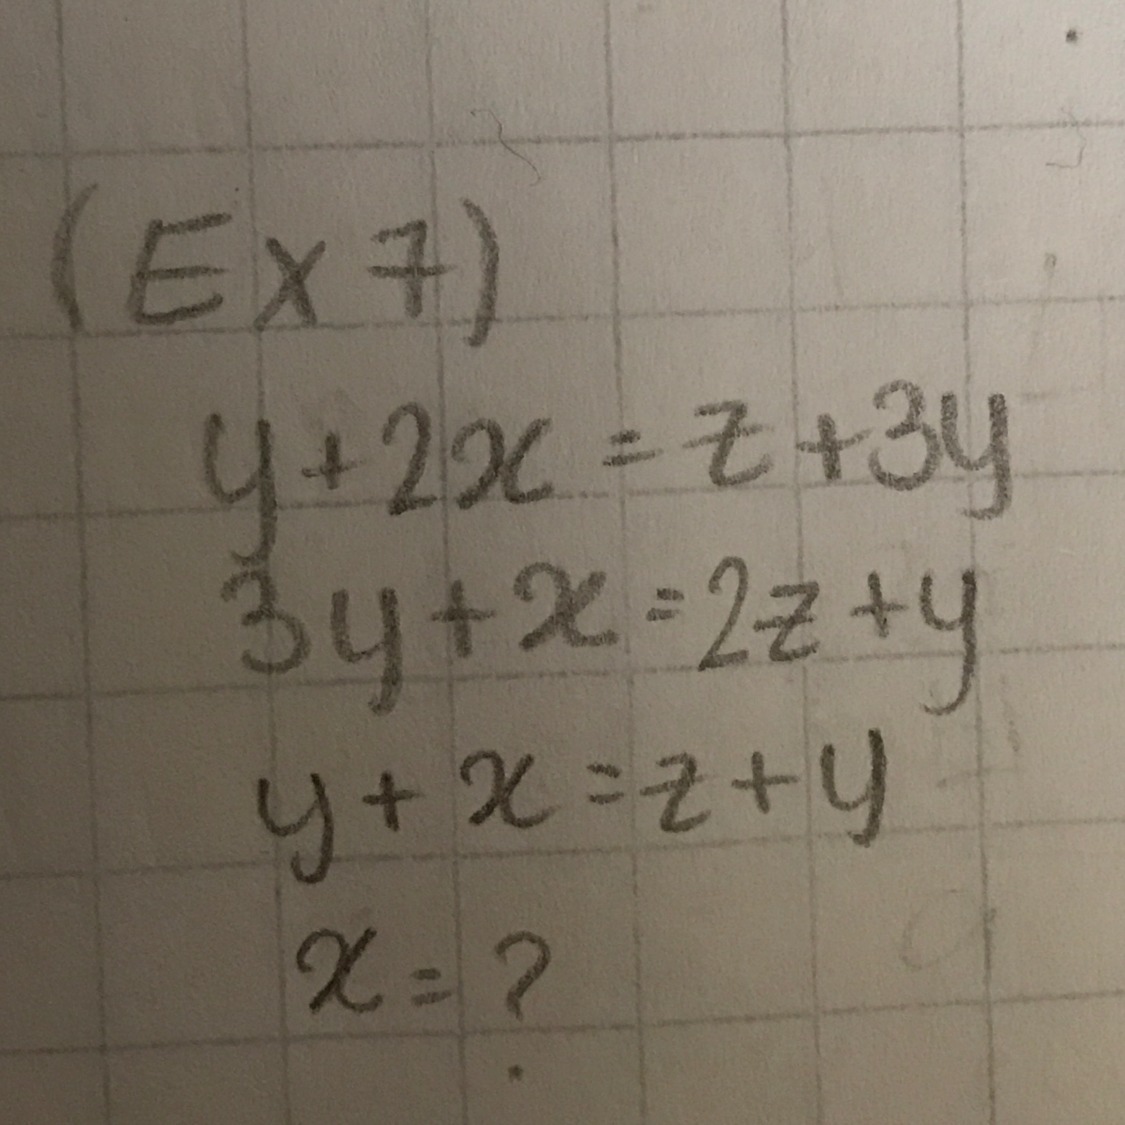 (Ex 7)
y + 2x = z + 3y
3y + x = 2z + y
y + x = z + y
x = ?